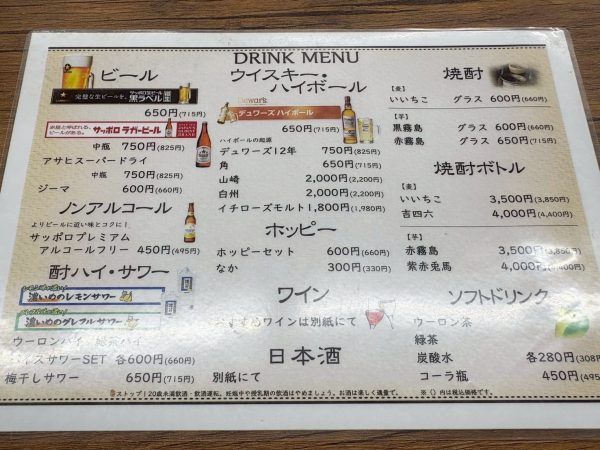 DRINK MENU
ビール
完璧な生ビールを。
サッポロ生ビール
黒ラベル
650円(715円)
サッポロ ラガービール
中瓶 750円(825円)
アサヒスーパードライ
中瓶 750円(825円)
ジーマ 600円(660円)
ノンアルコール
よりビールに近い味とコクに!
サッポロプレミアム
アルコールフリー 450円(495円)
酎ハイ・サワー
濃いめのレモンサワー
濃いめのグレフルサワー
ウーロンハイ 緑茶ハイ
バイスサワーSET 各600円(660円)
梅干しサワー 650円(715円)
ウイスキー・
ハイボール
Dewar's
デュワーズ ハイボール
650円(715円)
ハイボールの起源
デュワーズ12年 750円(825円)
角 650円(715円)
山崎 2,000円(2,200円)
白州 2,000円(2,200円)
イチローズモルト 1,800円(1,980円)
ホッピー
ホッピーセット 600円(660円)
なか 300円(330円)
ワイン
すすめワインは別紙にて
日本酒
別紙にて
焼酎
【麦】
いいちこ グラス 600円(660円)
【芋】
黒霧島 グラス 600円(660円)
赤霧島 グラス 650円(715円)
焼酎ボトル
【麦】
いいちこ 3,500円(3,850円)
吉四六 4,000円(4,400円)
【芋】
赤霧島 3,500円(3,850円)
紫赤兎馬 4,000円(4,400円)
ソフトドリンク
ウーロン茶
緑茶
炭酸水 各280円(308円)
コーラ瓶 450円(495円)
ストップ!20歳未満飲酒・飲酒運転。妊娠中や授乳期の飲酒はやめましょう。お酒は楽しく適量で。
※()内は税込価格です。